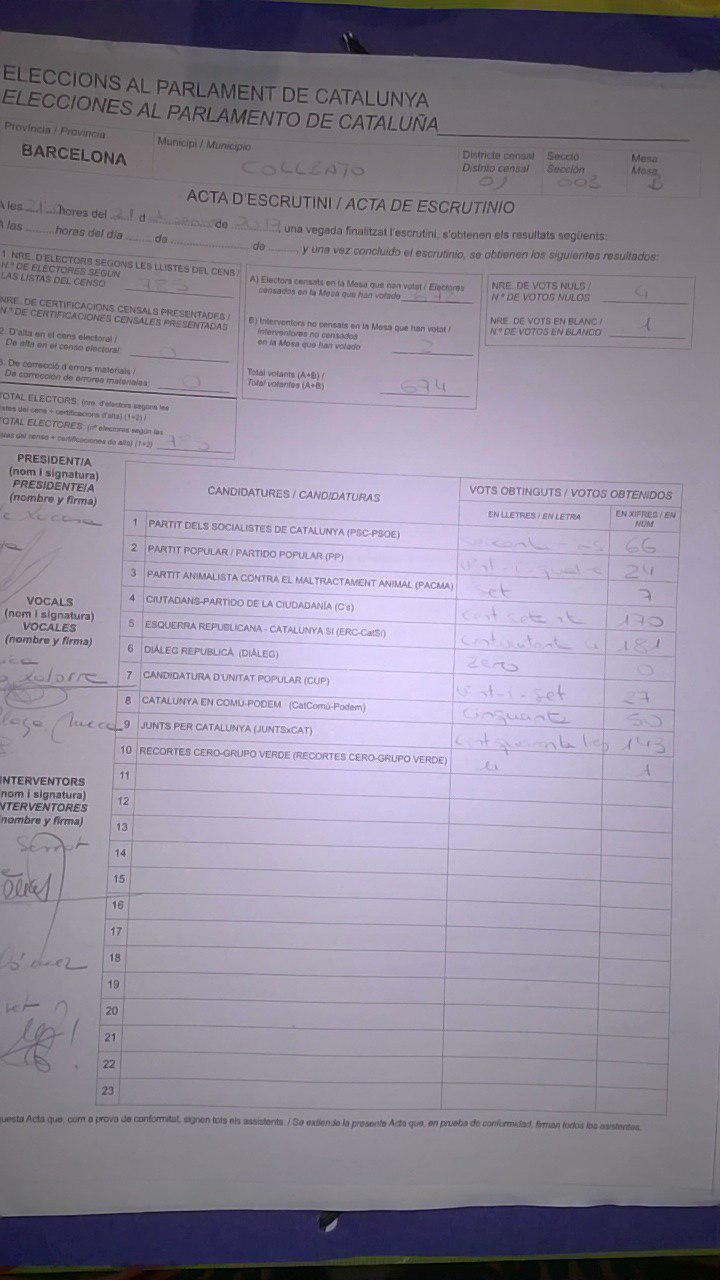 ELECCIONS AL PARLAMENT DE CATALUNYA
ELECCIONES AL PARLAMENTO DE CATALUÑA
Província / Provincia
BARCELONA
Municipi / Municipio
COLLBATO
Districte censal
Distrito censal
01
Secció
Sección
003
Mesa
Mesa
B
ACTA D'ESCRUTINI / ACTA DE ESCRUTINIO
A les hores del 21 d de 2017, una vegada finalitzat l'escrutini, s'obtenen els resultats següents:
A las ......... horas del día ......... de ......... de ......... y una vez concluido el escrutinio, se obtienen los siguientes resultados:
1. NRE. D'ELECTORS SEGONS LES LLISTES DEL CENS /
N.º DE ELECTORES SEGÚN
LAS LISTAS DEL CENSO 783
NRE. DE CERTIFICACIONS CENSALS PRESENTADES /
N.º DE CERTIFICACIONES CENSALES PRESENTADAS
2. D'alta en el cens electoral /
De alta en el censo electoral: 0
3. De correcció d'errors materials /
De corrección de errores materiales: 0
TOTAL ELECTORS: (nre. d'electors segons les
llistes del cens + certificacions d'alta) (1+2) /
TOTAL ELECTORES: (nº electores según las
listas del censo + certificaciones de alta) (1+2) 783
A) Electors censats en la Mesa que han votat / Electores
censados en la Mesa que han votado 672
B) Interventors no censats en la Mesa que han votat /
Interventores no censados
en la Mesa que han votado 2
Total votants (A+B) /
Total votantes (A+B) 674
NRE. DE VOTS NULS /
N.º DE VOTOS NULOS 4
NRE. DE VOTS EN BLANC /
N.º DE VOTOS EN BLANCO 1
PRESIDENT/A
(nom i signatura)
PRESIDENTE/A
(nombre y firma)
VOCALS
(nom i signatura)
VOCALES
(nombre y firma)
INTERVENTORS
(nom i signatura)
INTERVENTORES
(nombre y firma)
CANDIDATURES / CANDIDATURAS
VOTS OBTINGUTS / VOTOS OBTENIDOS
EN LLETRES / EN LETRA
EN XIFRES / EN NÚM
1 PARTIT DELS SOCIALISTES DE CATALUNYA (PSC-PSOE) 66
2 PARTIT POPULAR / PARTIDO POPULAR (PP) vint-i-quatre 24
3 PARTIT ANIMALISTA CONTRA EL MALTRACTAMENT ANIMAL (PACMA) set 7
4 CIUTADANS-PARTIDO DE LA CIUDADANÍA (C's) 170
5 ESQUERRA REPUBLICANA - CATALUNYA SÍ (ERC-CatSí) 181
6 DIÀLEG REPUBLICÀ (DIÀLEG) zero 0
7 CANDIDATURA D'UNITAT POPULAR (CUP) vint-i-set 27
8 CATALUNYA EN COMÚ-PODEM (CatComú-Podem) cinquanta 50
9 JUNTS PER CATALUNYA (JUNTSxCAT) 143
10 RECORTES CERO-GRUPO VERDE (RECORTES CERO-GRUPO VERDE) u 1
11
12
13
14
15
16
17
18
19
20
21
22
23
questa Acta que, com a prova de conformitat, signen tots els assistents. / Se extiende la presente Acta que, en prueba de conformidad, firman todos los asistentes.